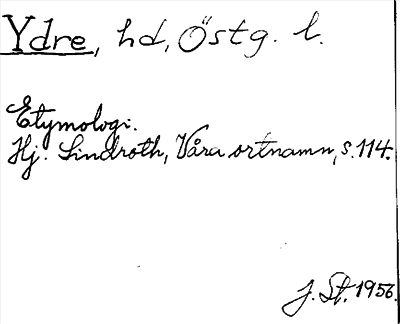 Ydre, hd, Östg. l.
Etymologi.
Hj. Lindroth, Våra ortnamn, s. 114.
J. St. 1956.